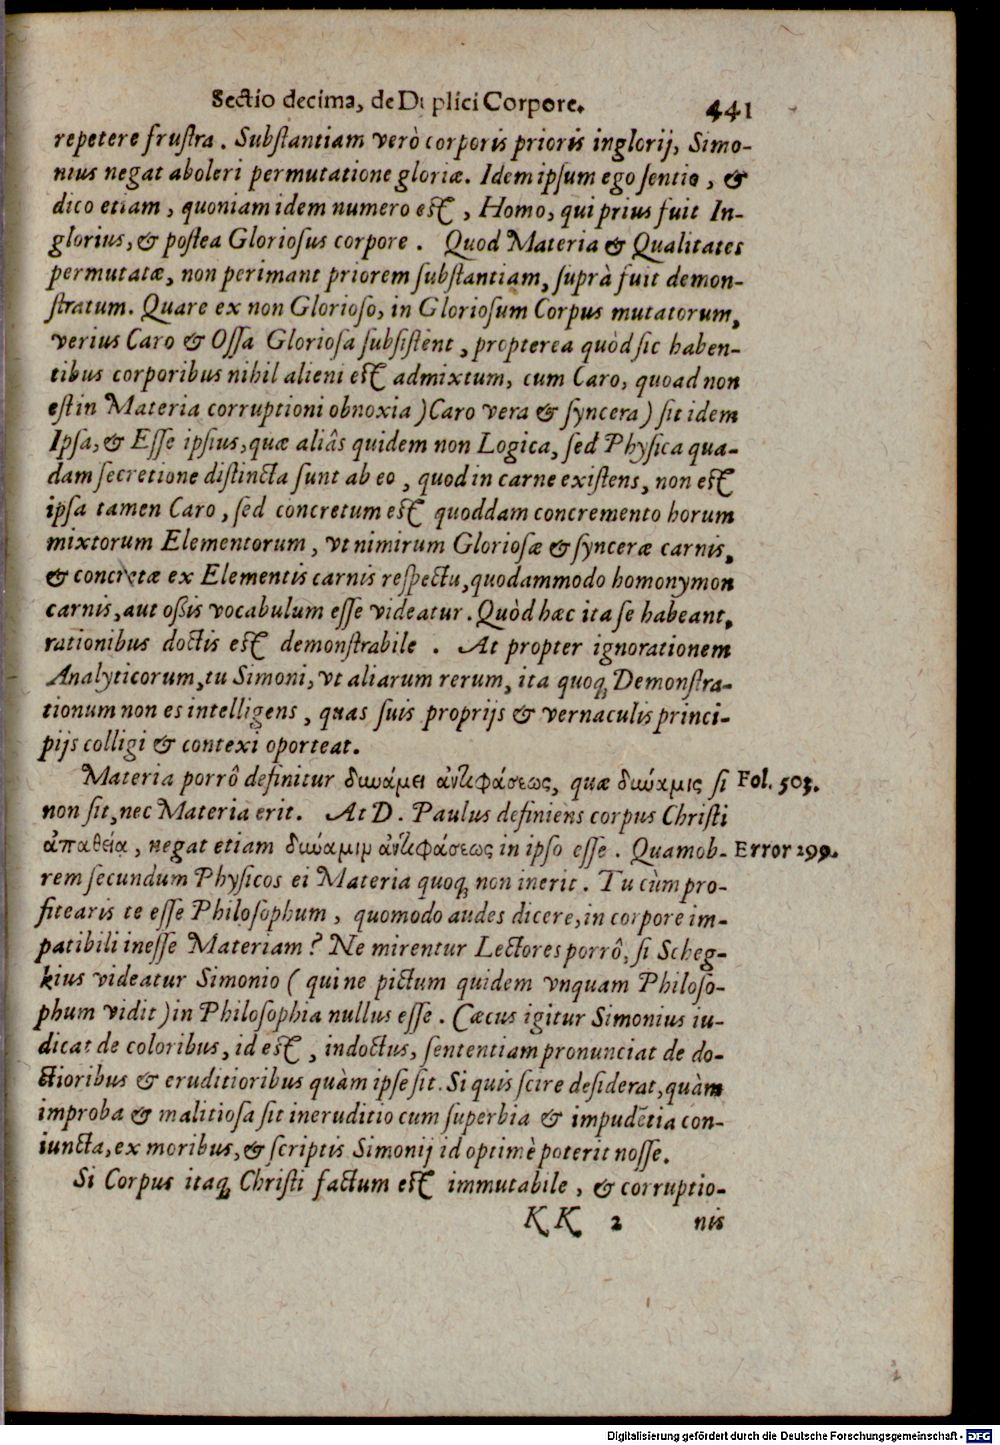 Sectio decima, de Duplici Corpore. 441
repetere frustra. Substantiam verò corporis prioris inglorij, Simo-
nius negat aboleri permutatione gloriæ. Idem ipsum ego sentio, &
dico etiam, quoniam idem numero est, Homo, qui prius fuit In-
glorius, & postea Gloriosus corpore. Quod Materia & Qualitates
permutatæ, non perimant priorem substantiam, suprà fuit demon-
stratum. Quare ex non Glorioso, in Gloriosum Corpus mutatorum,
verius Caro & Ossa Gloriosa subsistent, propterea quòd sic haben-
tibus corporibus nihil alieni est admixtum, cum Caro, quoad non
est in Materia corruptioni obnoxia) Caro vera & syncera) sit idem
Ipsa, & Esse ipsius, quæ aliâs quidem non Logica, sed Physica qua-
dam secretione distincta sunt ab eo, quod in carne existens, non est
ipsa tamen Caro, sed concretum est quoddam concremento horum
mixtorum Elementorum, vt nimirum Gloriosæ & synceræ carnis,
& concretæ ex Elementis carnis respectu, quodammodo homonymon
carnis, aut oßis vocabulum esse videatur. Quòd hæc ita se habeant,
rationibus doctis est demonstrabile. At propter ignorationem
Analyticorum, tu Simoni, vt aliarum rerum, ita quoq; Demonstra-
tionum non es intelligens, quas suis proprijs & vernaculis princi-
pijs colligi & contexi oporteat.
Materia porrô definitur δυνάμει ἀντιφάσεως, quæ δυνάμις si Fol. 503.
non sit, nec Materia erit. At D. Paulus definiens corpus Christi
ἀπαθείᾳ, negat etiam δυνάμιν ἀντιφάσεως in ipso esse. Quamob- Error 299.
rem secundum Physicos ei Materia quoq; non inerit. Tu cùm pro-
fitearis te esse Philosophum, quomodo audes dicere, in corpore im-
patibili inesse Materiam? Ne mirentur Lectores porrô, si Scheg-
kius videatur Simonio (qui ne pictum quidem vnquam Philoso-
phum vidit) in Philosophia nullus esse. Cæcus igitur Simonius iu-
dicat de coloribus, id est, indoctus, sententiam pronunciat de do-
ctioribus & eruditioribus quàm ipse sit. Si quis scire desiderat, quàm
improba & malitiosa sit ineruditio cum superbia & impudẽtia con-
iuncta, ex moribus, & scriptis Simonij id optimè poterit nosse.
Si Corpus itaq; Christi factum est immutabile, & corruptio-
KK 2 nis
Digitalisierung gefördert durch die Deutsche Forschungsgemeinschaft - DFG